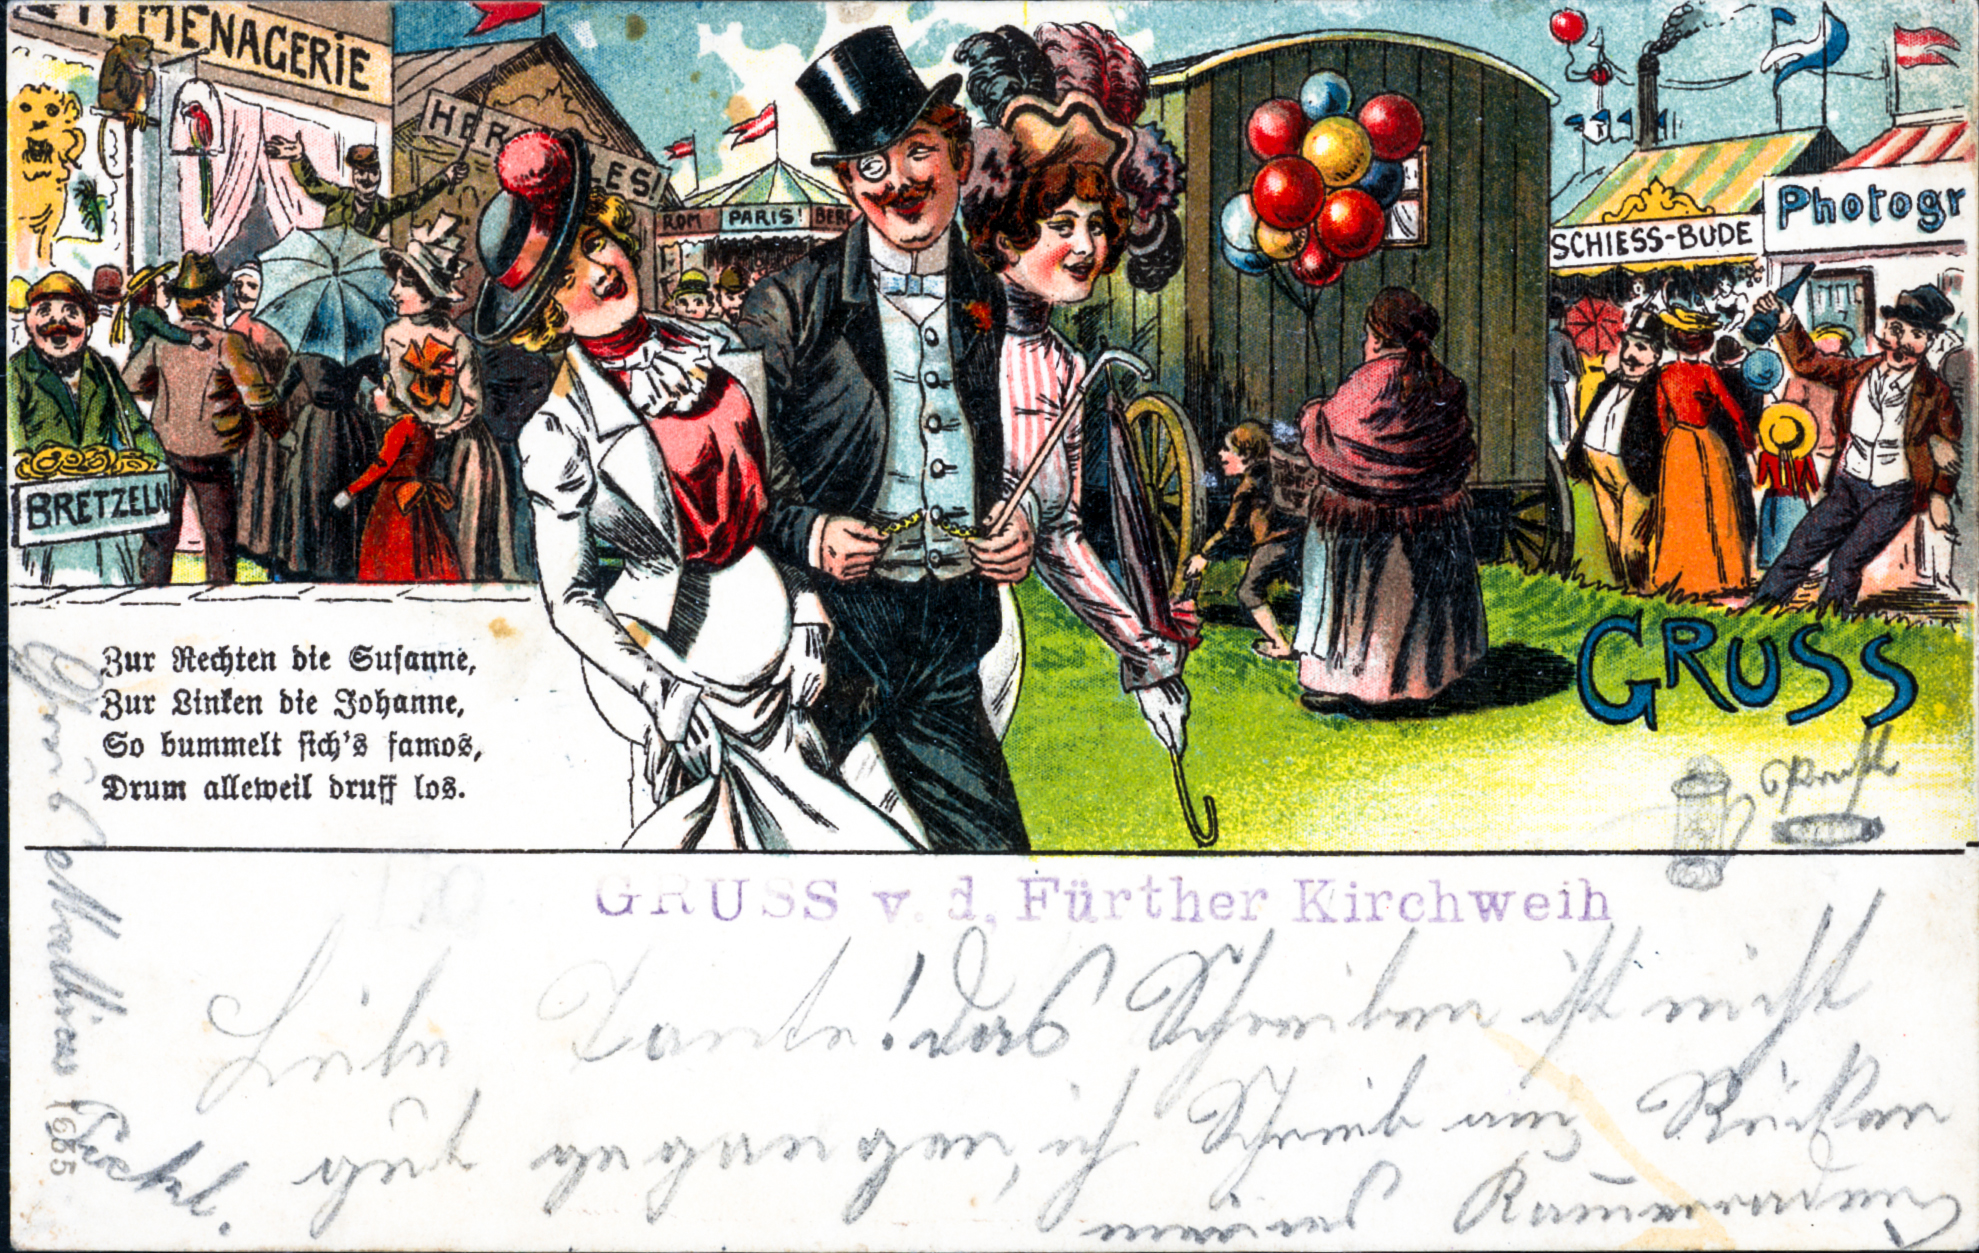 MENAGERIE
HER LES!
ROM PARIS! BER
SCHIESS-BUDE
Photogr
BRETZELN
GRUSS
Zur Rechten die Susanne,
Zur Linken die Johanne,
So bummelt sich's famos,
Drum alleweil druff los.
Prosit
GRUSS v. d. Fürther Kirchweih
Liebe Tante! das Schreiben ist nicht
gut gegangen, ich schrieb am Rücken
meines Kameraden
Gruß